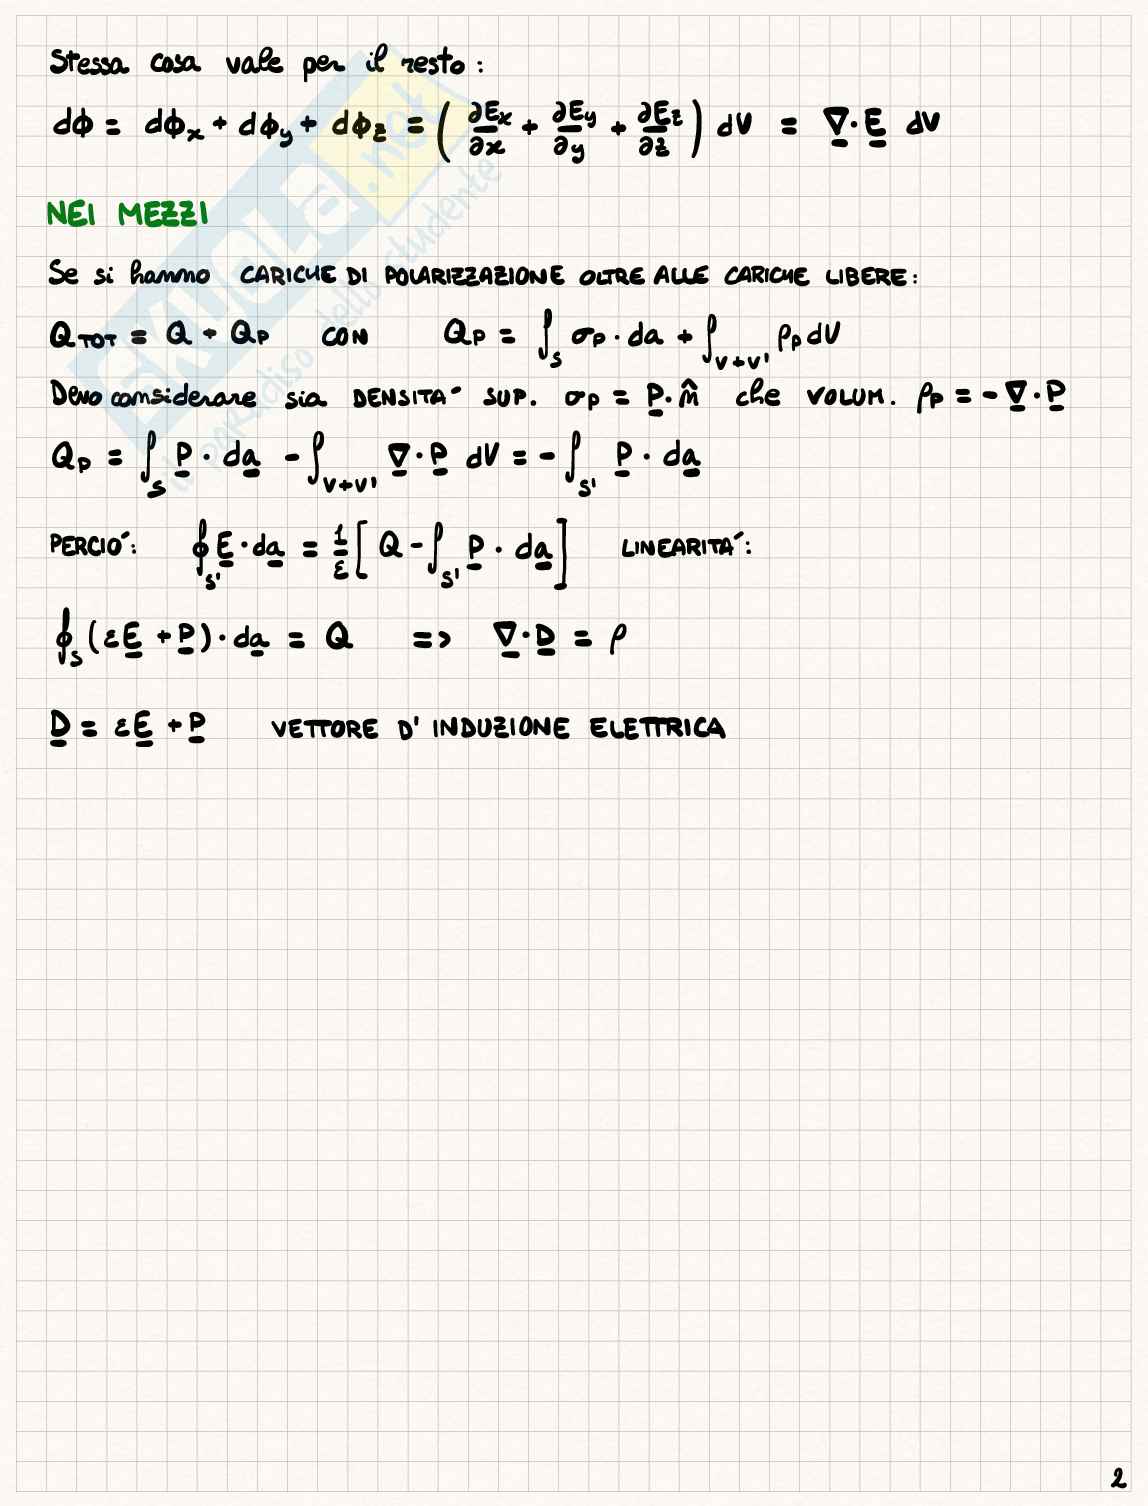 Stessa cosa vale per il resto :
dϕ = dϕx + dϕy + dϕz = ( ∂Ex/∂x + ∂Ey/∂y + ∂Ez/∂z ) dV = ∇·E dV
NEI MEZZI
Se si hanno CARICHE DI POLARIZZAZIONE OLTRE ALLE CARICHE LIBERE :
Q_TOT = Q + Q_P CON Q_P = ∫_S σ_P · da + ∫_{V+V'} ρ_P dV
Devo considerare sia DENSITA' SUP. σ_P = P·n̂ che VOLUM. ρ_P = -∇·P
Q_P = ∫_S P · da - ∫_{V+V'} ∇·P dV = - ∫_{S'} P · da
PERCIO': ∮_{S'} E · da = 1/ε [ Q - ∫_{S'} P · da ] LINEARITA':
∮_S (εE + P) · da = Q => ∇·D = ρ
D = εE + P VETTORE D'INDUZIONE ELETTRICA
SKUOLA.net
il paradiso dello studente
2